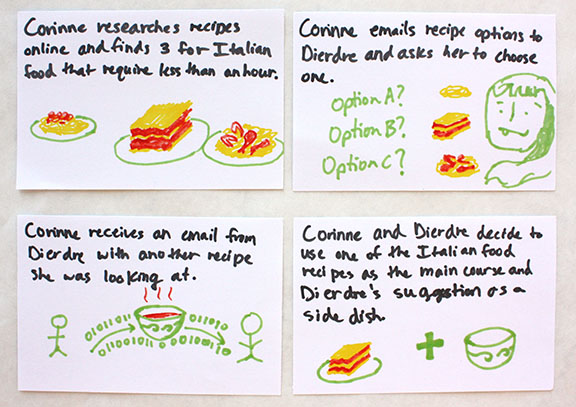 Corinne researches recipes
online and finds 3 for Italian
food that require less than an hour.
Corinne emails recipe options to
Dierdre and asks her to choose
one.
Option A?
Option B?
Option C?
Corinne receives an email from
Dierdre with another recipe
she was looking at.
Corinne and Dierdre decide to
use one of the Italian food
recipes as the main course and
Dierdre's suggestion as a
side dish.
+